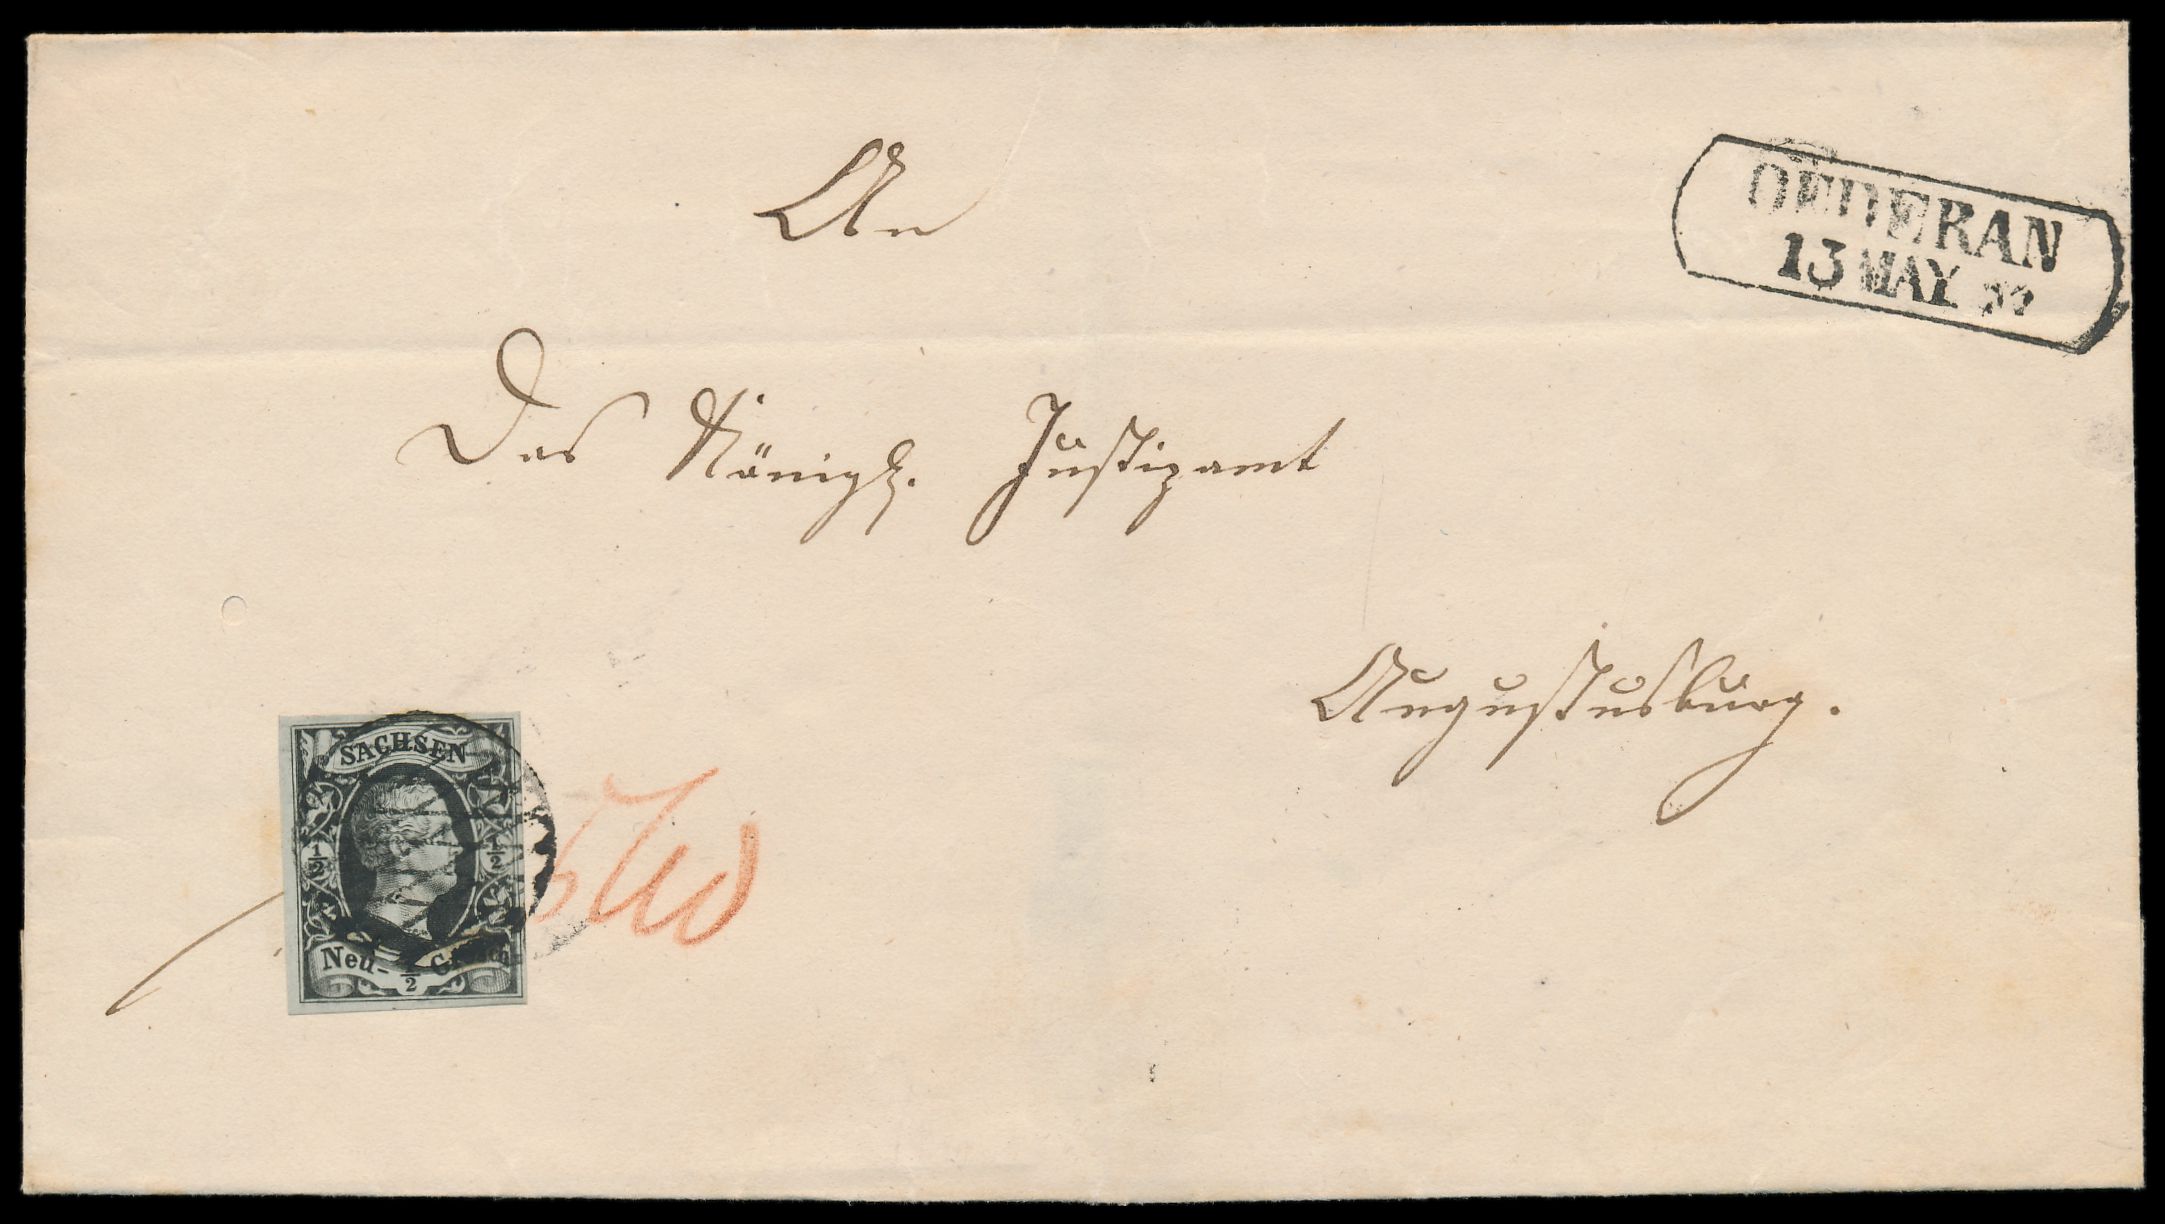 An
OEDERAN
13 MAY
Das Königl. Justizamt
Augustusburg.
SACHSEN
½ ½
Neu- ½ Grosch.